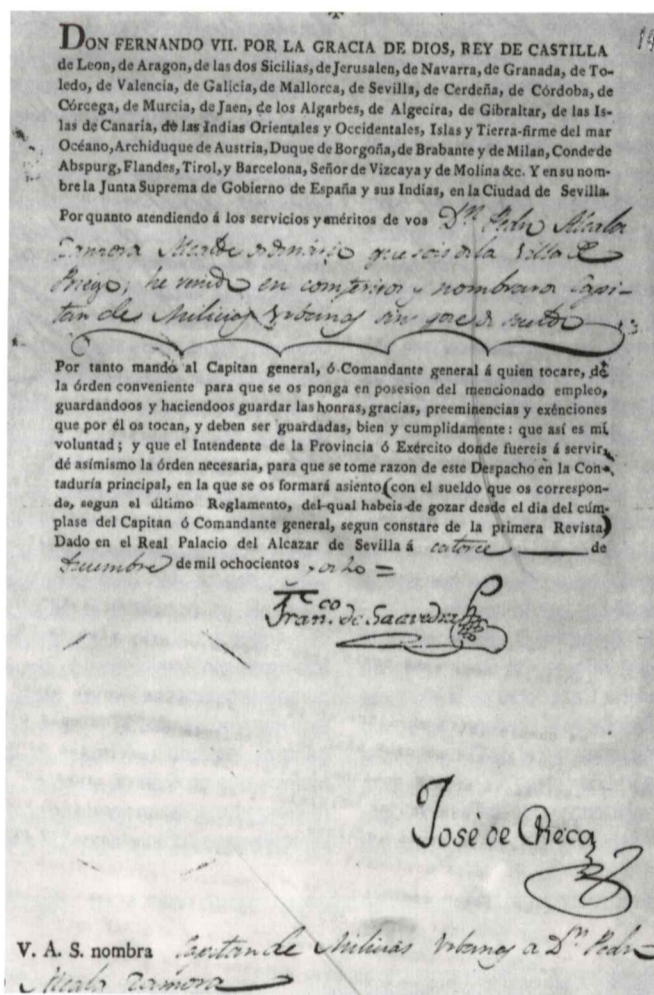 DON FERNANDO VII. POR LA GRACIA DE DIOS, REY DE CASTILLA
de Leon, de Aragon, de las dos Sicilias, de Jerusalen, de Navarra, de Granada, de To-
ledo, de Valencia, de Galicia, de Mallorca, de Sevilla, de Cerdeña, de Córdoba, de
Córcega, de Murcia, de Jaen, de los Algarbes, de Algecira, de Gibraltar, de las Is-
las de Canaria, de las Indias Orientales y Occidentales, Islas y Tierra-firme del mar
Océano, Archiduque de Austria, Duque de Borgoña, de Brabante y de Milan, Conde de
Abspurg, Flandes, Tirol, y Barcelona, Señor de Vizcaya y de Molina &c. Y en su nom-
bre la Junta Suprema de Gobierno de España y sus Indias, en la Ciudad de Sevilla.
Por quanto atendiendo á los servicios y méritos de vos Dn. Pedro Alcala
Zamora Alcalde ordinario que sois de la Villa de
Priego; he venido en conferiros y nombraros Capi-
tan de Milicias Urbanas sin goce de sueldo
Por tanto mando al Capitan general, ó Comandante general á quien tocare, dé
la órden conveniente para que se os ponga en posesion del mencionado empleo,
guardandoos y haciendoos guardar las honras, gracias, preeminencias y exênciones
que por él os tocan, y deben ser guardadas, bien y cumplidamente: que así es mi
voluntad; y que el Intendente de la Provincia ó Exército donde fuereis á servir,
dé asímismo la órden necesaria, para que se tome razon de este Despacho en la Con-
taduría principal, en la que se os formará asiento (con el sueldo que os correspon-
de, segun el último Reglamento, del qual habeis de gozar desde el dia del cúm-
plase del Capitan ó Comandante general, segun constare de la primera Revista)
Dado en el Real Palacio del Alcazar de Sevilla á catorce de
Diciembre de mil ochocientos ocho =
Franco. de Saavedra
José de Checa
V. A. S. nombra Capitan de Milicias Urbanas a Dn. Pedro
Alcala Zamora